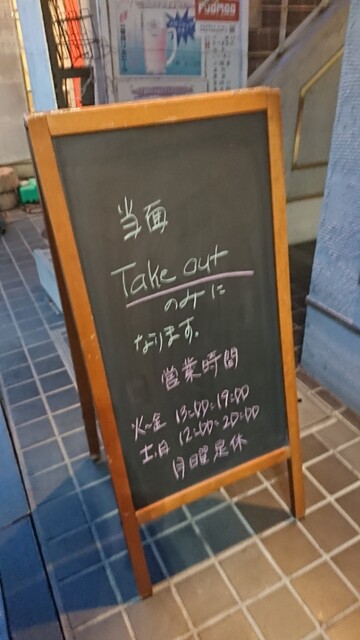 当面
Take out
のみに
なります。
営業時間
火〜金 13:00-19:00
土.日 12:00-20:00
月曜定休